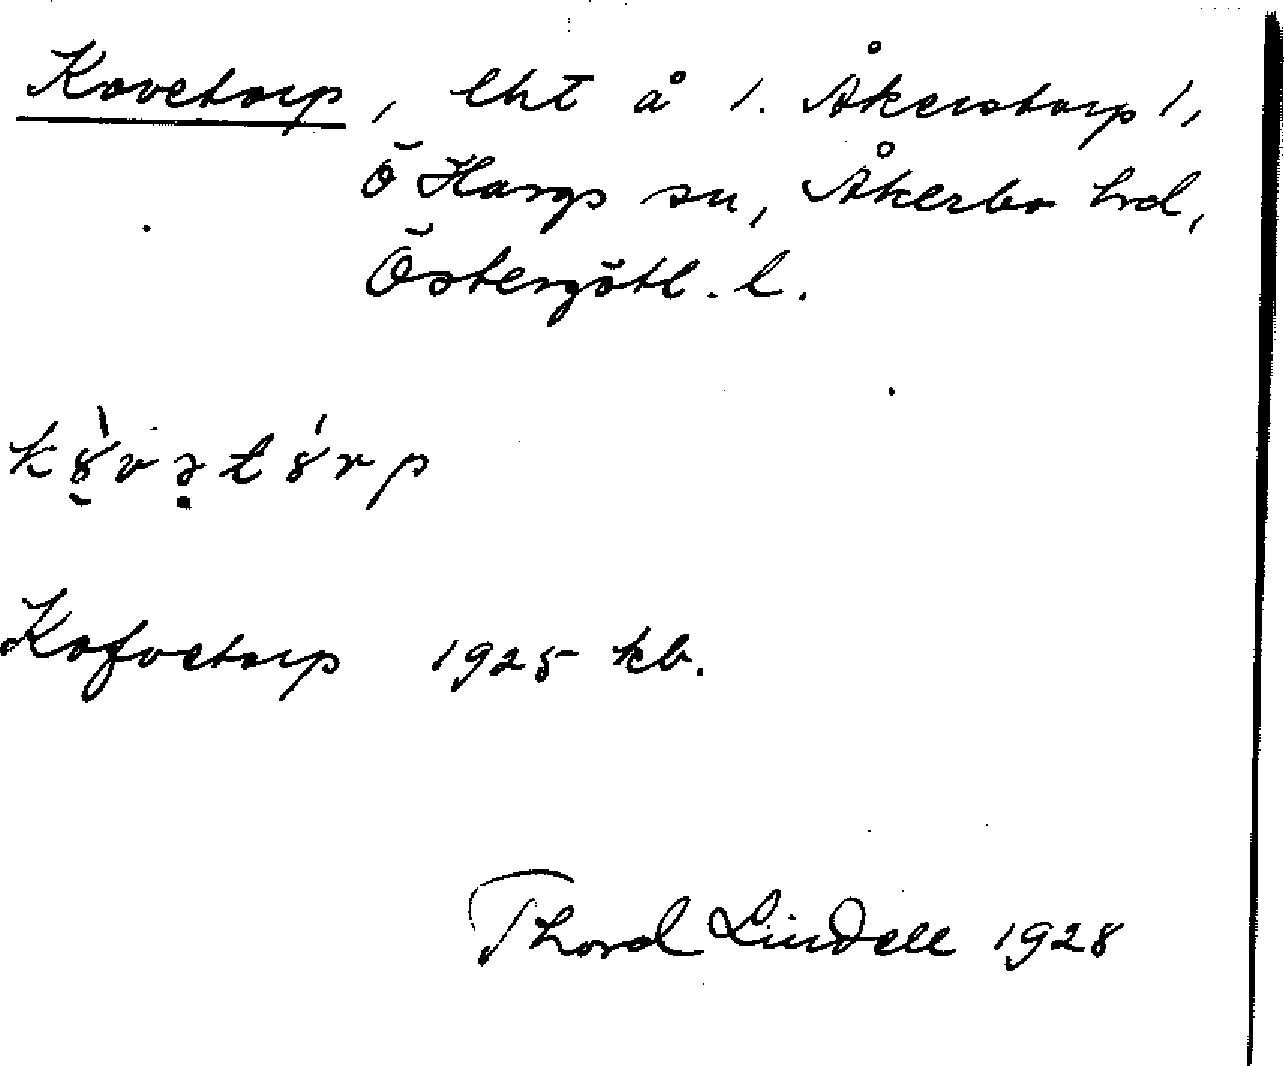 Kovetorp, lht å 1. Åkerstorp 1,
Ö Hargs sn, Åkerbo hd,
Östergötl. l.
kȣ̀vətȣ́rp
Kofvetorp 1925 kb.
Thord Lindell 1928